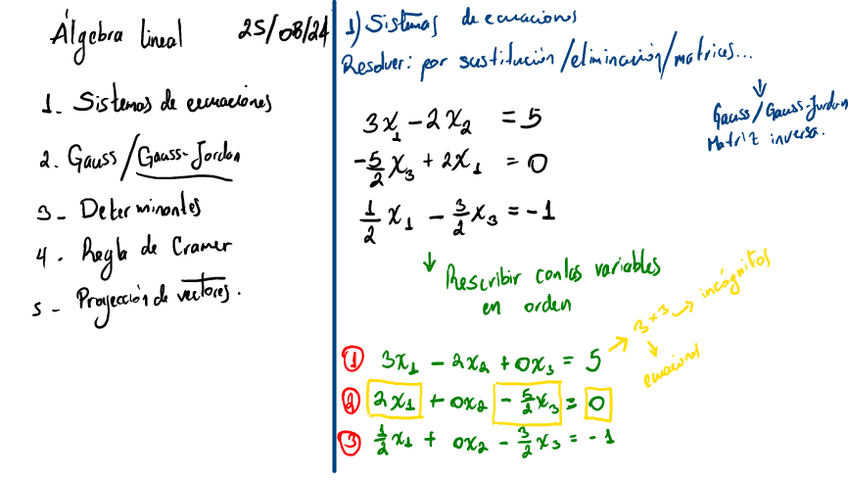 Álgebra lineal 25/08/24
1. Sistemas de ecuaciones
2. Gauss/Gauss-Jordan
3 - Determinantes
4. Regla de Cramer
5 - Proyección de vectores.
1) Sistemas de ecuaciones
Resolver: por sustitución/eliminación/matrices...
↓
Gauss/Gauss-Jordan
Matriz inversa.
3x₁ - 2x₂ = 5
-5/2 x₃ + 2x₁ = 0
1/2 x₁ - 3/2 x₃ = -1
↓ Rescribir con las variables
en orden
① 3x₁ - 2x₂ + 0x₃ = 5 → 3 × 3 → incógnitas
↓
ecuaciones
② 2x₁ + 0x₂ - 5/2 x₃ = 0
③ 1/2 x₁ + 0x₂ - 3/2 x₃ = -1